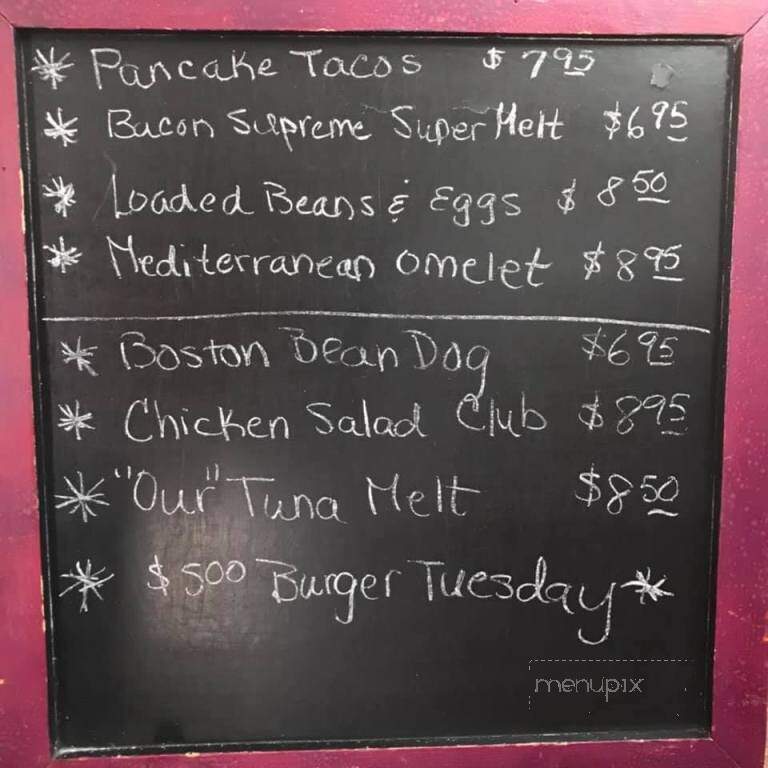 * Pancake Tacos $7 95
* Bacon Supreme Super Melt $6 95
* Loaded Beans & Eggs $8 50
* Mediterranean Omelet $8 95
* Boston Bean Dog $6 95
* Chicken Salad Club $8 95
* "Our" Tuna Melt $8 50
* $5 00 Burger Tuesday *
menupix